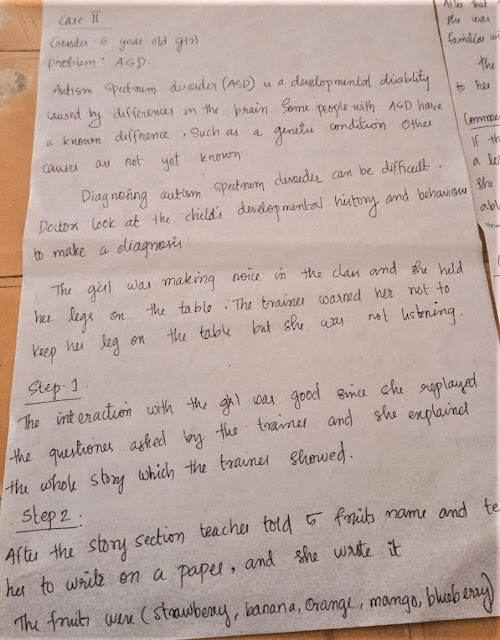 Case II
Gender 6 year old girl
problem : ASD.
Autism Spectrum disorder (ASD) is a developmental disability
caused by differences in the brain Some people with ASD have
a known difference, Such as a genetic condition Other
causes are not yet known.
Diagnosing autism spectrum disorder can be difficult.
Doctors look at the child's developmental history and behaviour
to make a diagnosis.
The girl was making noice in the class and she held
her legs on the table. The trainer warned her not to
keep her leg on the table but she was not listening.
Step-1
The interaction with the girl was good since she replayed
the questiones asked by the trainer and she explained
the whole story which the trainer showed.
Step 2 :
After the story section teacher told 5 fruits name and te
her to write on a paper, and she wrote it
The fruits were (strawberry, banana, Orange, mango, blueberry)
After that
She was
familiar wi
The
to her
Comme
If th
a lo
She
abl